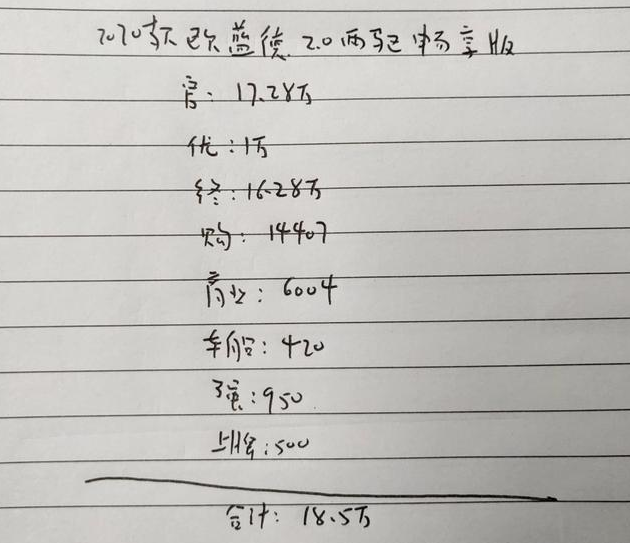 2020款欧蓝德 2.0两驱畅享版
官: 17.28万
优: 1万
终: 16.28万
购: 14407
商业: 6004
车船: 420
强: 950
上牌: 500
合计: 18.5万